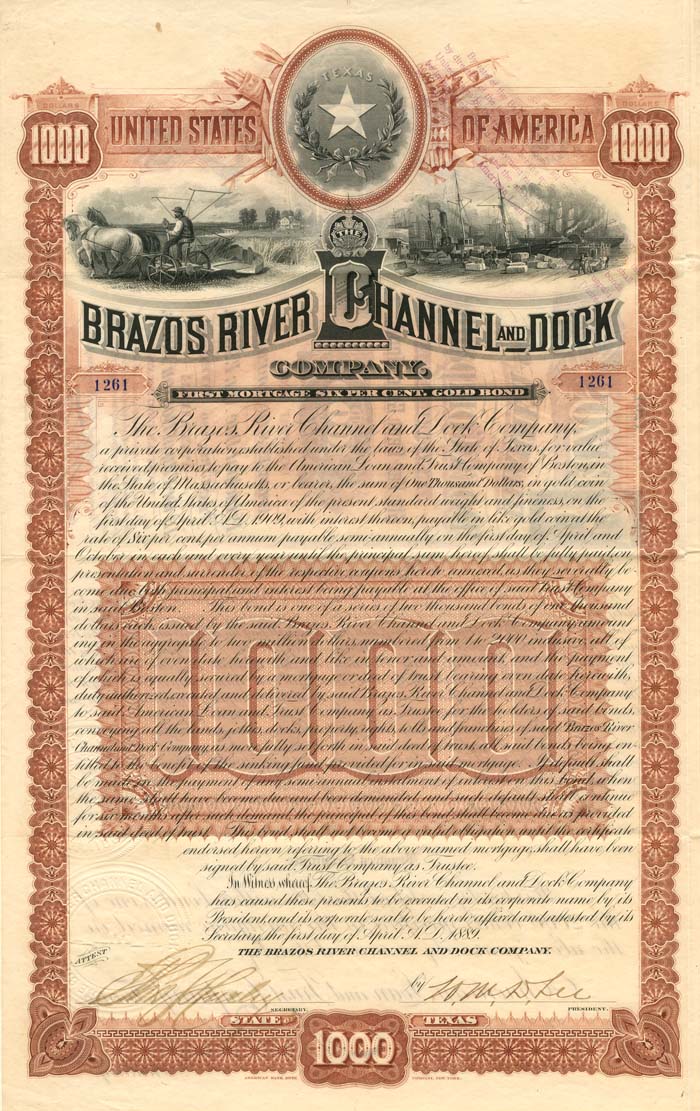 TEXAS
DOLLARS DOLLARS
1000 UNITED STATES OF AMERICA 1000
THE
BRAZOS RIVER CHANNEL AND DOCK
COMPANY.
1261 1261
FIRST MORTGAGE SIX PER CENT. GOLD BOND
The Brazos River Channel and Dock Company,
a private corporation, established under the laws of the State of Texas, for value
received, promises to pay to the American Loan and Trust Company of Boston, in
the State of Massachusetts, or bearer, the sum of One Thousand Dollars, in gold coin
of the United States of America of the present standard weight and fineness, on the
first day of April, A.D. 1909, with interest thereon, payable in like gold coin at the
rate of Six per cent. per annum payable semi-annually on the first day of April and
October in each and every year until the principal sum hereof shall be fully paid, on
presentation and surrender of the respective coupons hereto annexed, as they severally be-
come due, both principal and interest being payable at the office of said Trust Company
in said Boston. This bond is one of a series of two thousand bonds of one thousand
dollars each, issued by the said Brazos River Channel and Dock Company, amount
ing in the aggregate to two million dollars, numbered from 1 to 2000 inclusive, all of
which are of even date herewith and like in tenor and amount, and the payment
of which is equally secured by a mortgage or deed of trust, bearing even date herewith,
duly authorized, executed and delivered by said Brazos River Channel and Dock Company
to said American Loan and Trust Company as Trustee for the holders of said bonds,
conveying all the lands, jetties, docks, property, rights, tolls and franchises of said Brazos River
Channel and Dock Company, as more fully set forth in said deed of trust, all said bonds being en-
titled to the benefit of the sinking fund provided for in said mortgage. If default shall
be made in the payment of any semi-annual instalment of interest on this bond, when
the same shall have become due and been demanded, and such default shall continue
for six months after such demand, the principal of this bond shall become due as provided
in said deed of trust. This bond shall not become a valid obligation until the certificate
endorsed hereon referring to the above named mortgage, shall have been
signed by said Trust Company as Trustee.
In Witness whereof, The Brazos River Channel and Dock Company
has caused these presents to be executed in its corporate name by its
President, and its corporate seal to be hereto affixed and attested by its
Secretary, the first day of April, A.D. 1889.
THE BRAZOS RIVER CHANNEL AND DOCK COMPANY.
ATTEST
by W. M. D. Lee
SECRETARY. PRESIDENT.
STATE OF TEXAS
1000
AMERICAN BANK NOTE COMPANY, NEW YORK.